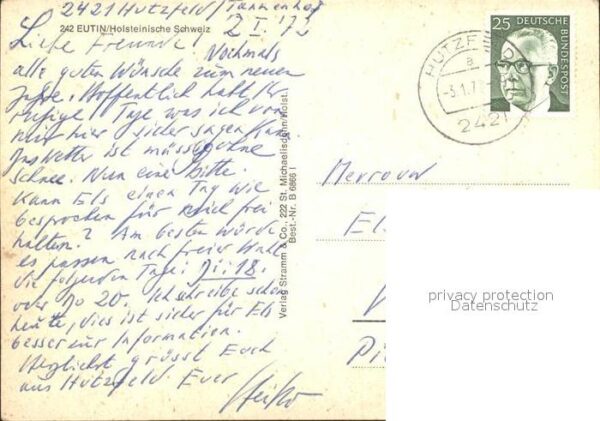 2421 Hutzfeld/Tannenhof
242 EUTIN/Holsteinische Schweiz
2 I. 73
Liebe Freunde! Nochmals
alle guten Wünsche zum neuen
Jahre. Hoffentlich habt Ihr
ruhige Tage was ich von
mir hier sicher sagen kann.
Das Wetter ist mässig ohne
Schnee. Nun eine Bitte.
Kann Els einen Tag wie
besprochen für mich frei
halten? Am besten würde
es passen nach freier Wahl
die folgenden Tage: Di. 18.
oder 20. Ich schreibe schon
heute, dies ist sicher für Els
besser zur Information.
Herzlichst grüsst Euch
aus Hutzfeld Euer Heiko
Verlag Stramm & Co., 222 St. Michaelisdonn/Holst.
Best.-Nr. B 6866 I
25 DEUTSCHE BUNDESPOST
HUTZFELD
a
-3.1.73
2421
El
privacy protection
Datenschutz